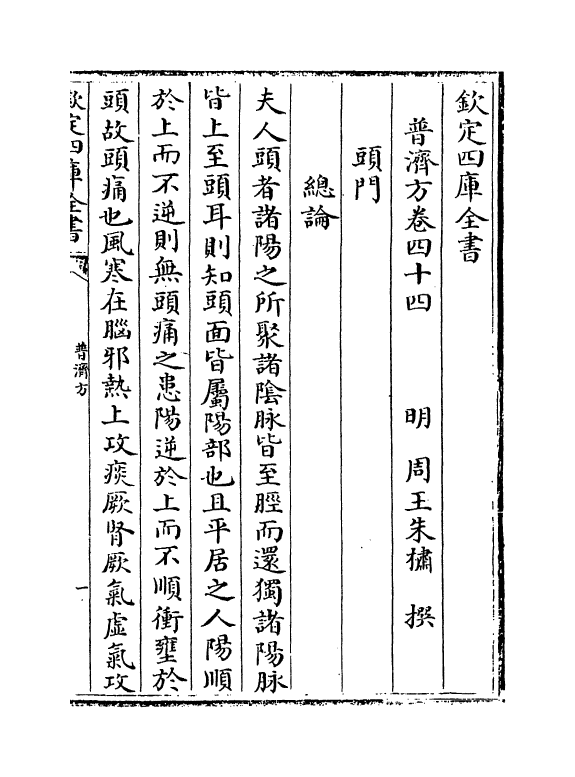 欽定四庫全書
普濟方卷四十四 明 周王朱橚 撰
頭門
總論
夫人頭者諸陽之所聚諸陰脉皆至脛而還獨諸陽脉
皆上至頭耳則知頭面皆屬陽部也且平居之人陽順
於上而不逆則無頭痛之患陽逆於上而不順衝壅於
頭故頭痛也風寒在腦邪熱上攻痰厥腎厥氣虛氣攻
欽定四庫全書
普濟方
一